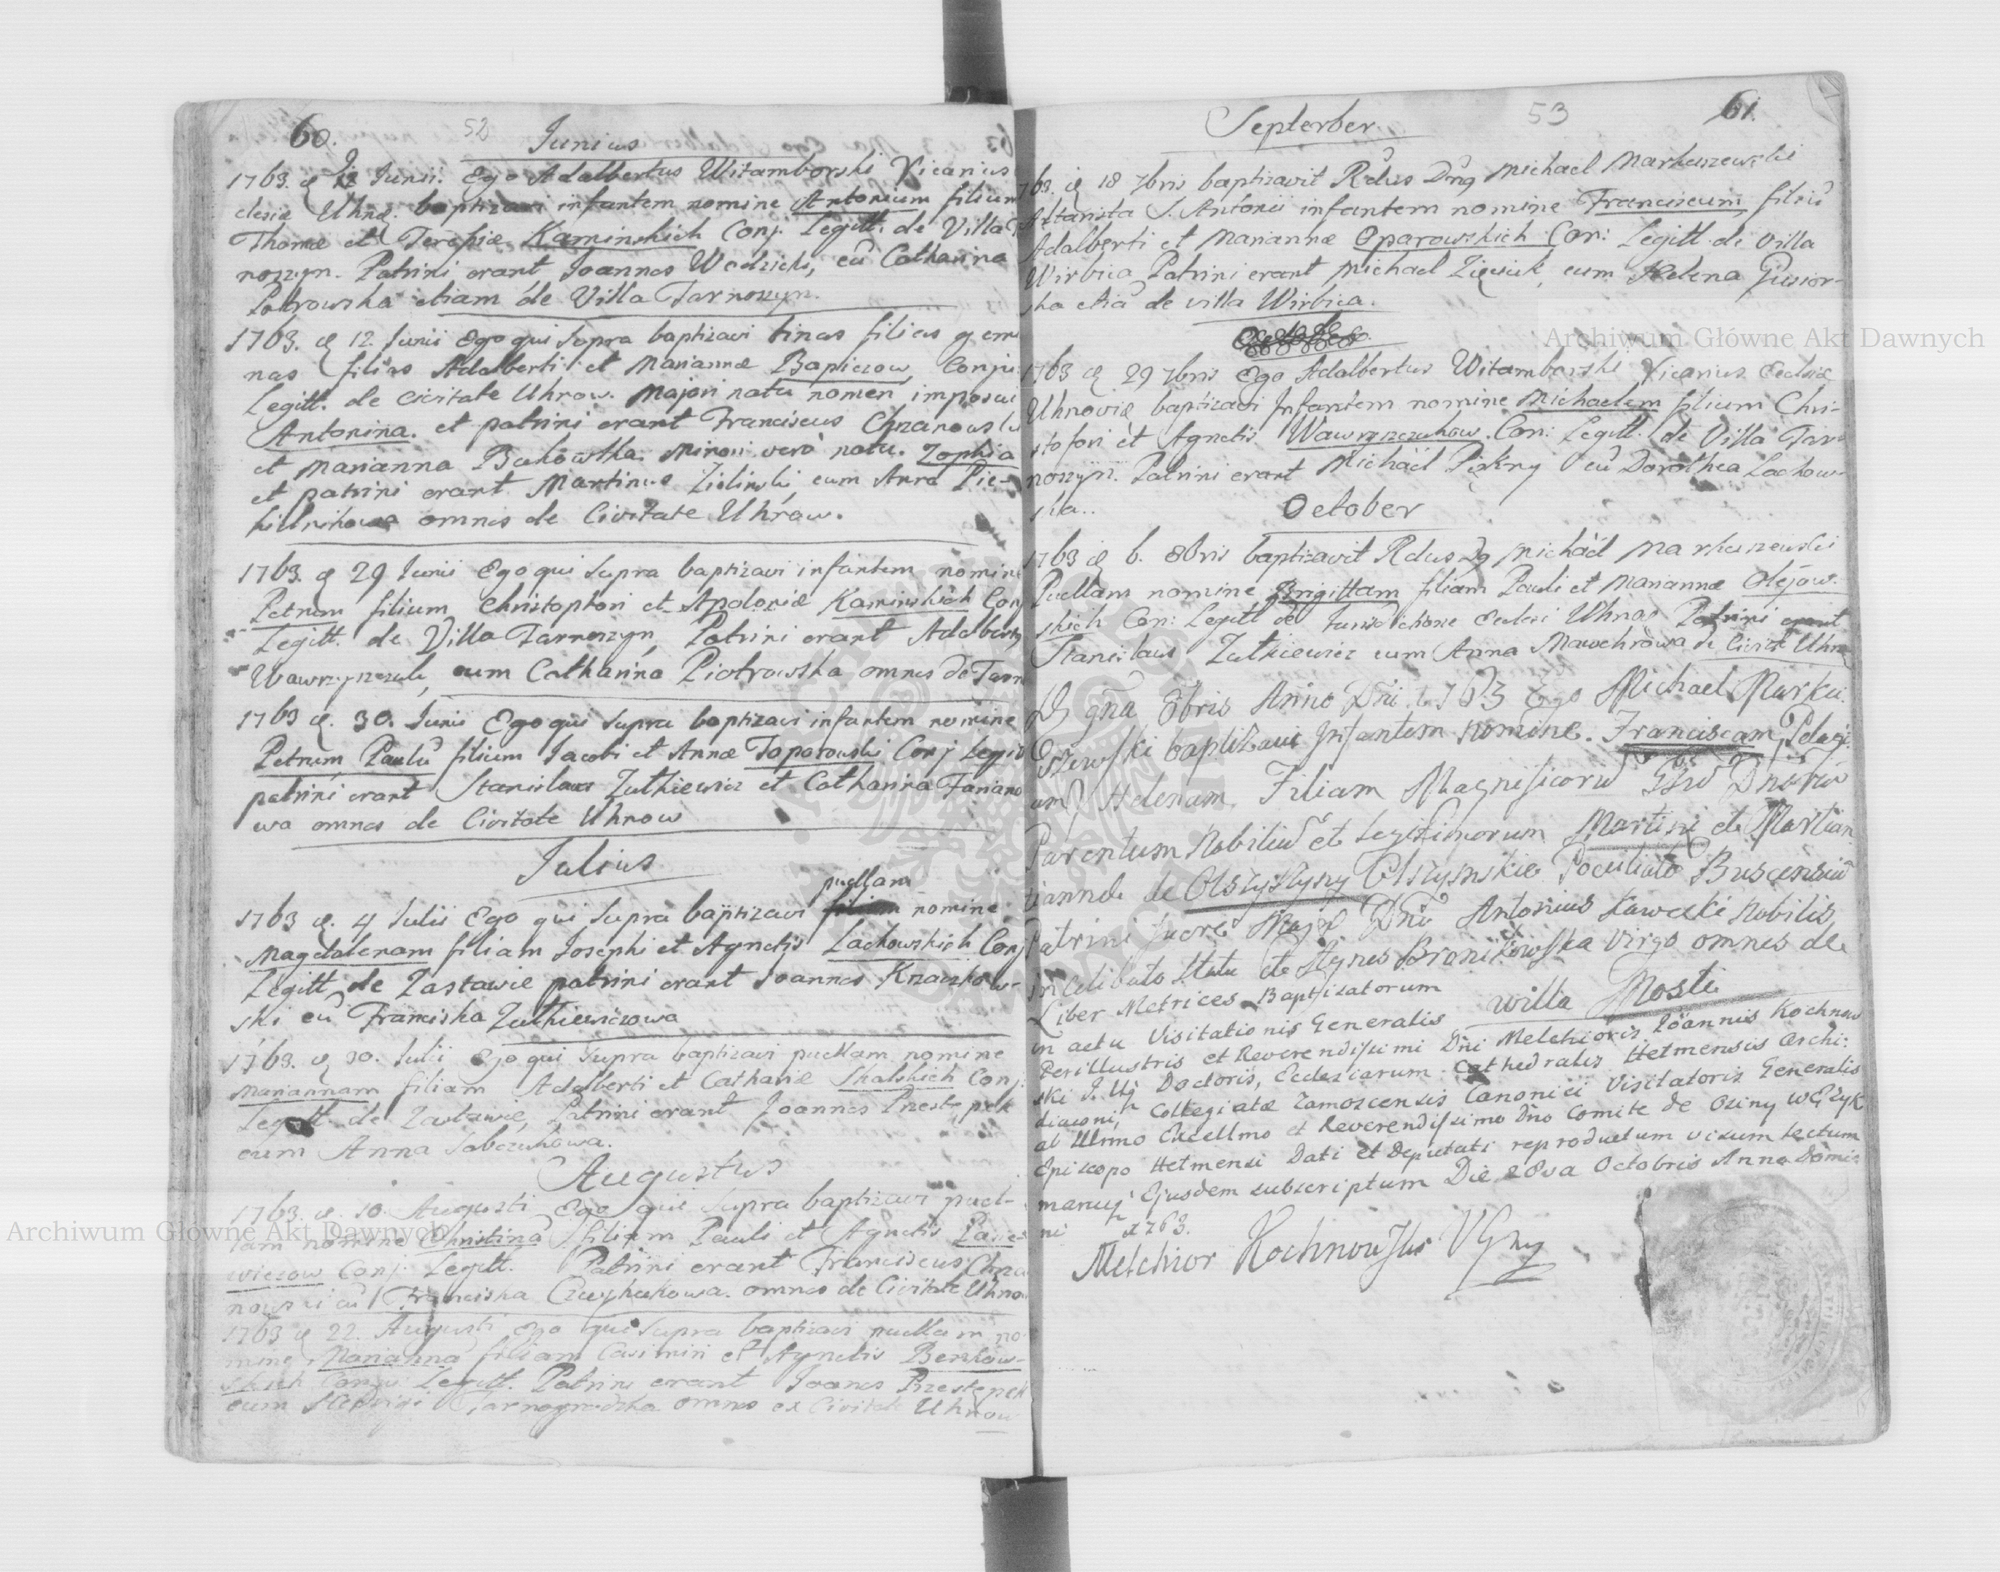 60. 52
Junius
1763. d 12 Junii. Ego Adalbertus Witamborski Vicarius
clesiæ Uhnæ. baptizavi infantem nomine Antonium filium
Thomæ et Teresiæ Kaminskich Conj. Legitt. de Villa T
noszyn. Patrini erant Joannes Wodzicki, cū Catharina
Potrowska etiam de Villa Tarnoszyn.
1763. d 12. Junii Ego qui supra baptizavi binas filias gemi
nas filias Adalberti et Mariannæ Bapiczow Conju
Legitt. de civitate Uhnow. Majori natu nomen imposui
Antonina. et patrini erant Franciscus Chzanowski
et Marianna Bukowska. Minori verò natu. Zophia
et patrini erant Martinus Zielinski cum Anna Pie-
kielnikowa omnes de Civitate Uhnow.
1763. d 29 Junii Ego qui supra baptizavi infantem nomine
Petrum filium Christophori et Apoloniæ Kaminskich Con
Legitt. de Villa Tarnoszyn, Patrini erant Adalbertus
Wawrzyszczuk, cum Catharina Piotrowska omnes de Tarn
1763 d. 30. Junii Ego qui supra baptizavi infantem nomine
Petrum Paulū filium Jacobi et Annæ Toporowski Conj Legit
patrini erant Stanislaus Zutkiewicz et Catharina Farian
owa omnes de Civitate Uhnow
Julius
puellam
1763 d. 4 Julii Ego qui supra baptizavi nomine
Magdalenam filiam Josephi et Agnetis Lachowskich Conj
Legitt. de Zastawie patrini erant Joannes Knazkow-
ski cū Franciska Zutkiewiczowa
1763. d 30. Julii Ego qui supra baptizavi puellam nomine
Mariannam filiam Adalberti et Catharinæ Skalskich Conj:
Legitt. de Zastawie, Patrini erant Joannes Przestepek
cum Anna Sobczukowa.
Augustus
1763. d. 10. Augusti Ego qui supra baptizavi puel-
lam nomine Christinā filiam Pauli et Agnetis
Conj: Legitt. Patrini erant Franciscus Chza
nowski cū Franciska omnes de Civitate Uhno
1763 d 22. Augusti Ego qui supra baptizavi puellam no
mine Marianna filiam Casimiri et Agnetis
Conju: Legitt. Patrini erant Joanes Przestepek
cum Hedvigi Tarnogrodzka omnes ex Civitate Uhnow
53 61.
September
1763. d 18 7bris baptizavit Rdus Dnq Michael Markuszewski
Altarista S. Antonii infantem nomine Franciscum, filiū
Adalberti et Mariannæ Oparowskich Con: Legitt. de villa
Wirbica Patrini erant, Michael Zięciuk, cum Helena Gąsior-
ska etiā de villa Wirbica.
1763 d 29 7bris Ego Adalbertus Witamborski Vicarius Ecclesiæ
Uhnoviæ baptizavi Infantem nomine Michaelem filium Chri-
stofori et Agnetis Wawrzyszczukow. Con: Legitt. de Villa Tar-
noszyn. Patrini erant Michaël Piękny cū Dorothea Lachow-
ska..
October
1763 d 6. 8bris baptizavit Rdus Dq Michaël Markuszewski
Puellam nomine Brigittam filiam Pauli et Mariannæ Olejow-
skich Con: Legitt de Eccleri Uhnæ Patrini erant
Stanislaus Zutkiewicz cum Anna Mawchrowa de Civit. Uhn
D 9na 8bris Anno Dni 1763 Ego Michael Marku
szewski baptizavi Infantem nomine. Franciscam, Pelagi
am, Helenam, Filiam Magnificorū Dnorū
Parentum Nobiliū et Legitimorum Martini et Martian
tiannde de Olszyszyny Olszynskie Pociliato Buscensiū
Patrini fuere Dnū Antonius Kawecki Nobilis
in Celibato Statu et Agnes Bronikowska Virgo omnes de
willa Mosti
Liber Metrices Baptizatorum
in actu Visitationis Generalis
Perillustris et Reverendissimi Dni Melchioris Joannis Kochnow
ski J. Uj Doctoris, Ecclesiarum Cathedralis Hetmensis Archi:
diaconi, Collegiatæ Zamoscensis Canonici Visitatoris Generalis
ab Illmo Excellmo et Reverendissimo Dno Comite de Osiny Węzyk
Episcopo Hetmensi Dati et Deputati reproductum visum lectum
manuq Ejusdem subscriptum Die 28va Octobris Anno Domi-
ni 1763.
Melchior Kochnowski VGnlq
Archiwum Główne Akt Dawnych
Archiwum Główne Akt Dawnych